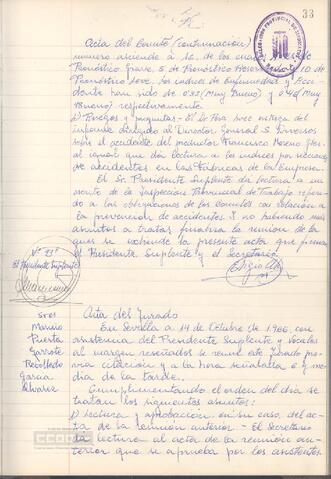 33
Acta del Comité (continuación)
número asciende a 16, de los cuales
Pronóstico Grave, 5 de Pronóstico Reservado 10 de
Pronóstico Leve. Los índices de Enfermedad y Acci-
dente han sido de 0'83 (Muy Bueno) y 0'48 (Muy
Bueno) respectivamente.
Ruegos y preguntas.- El Dr. Pera hace entrega del
informe dirigido al Director General S. Diversos
sobre el accidente del productor Francisco Moreno
al igual que da lectura a los índices por secciones
de accidentes en las Fábricas de la Empresa.
El Sr. Presidente Suplente da lectura a un
de la Inspección Provincial de Trabajo referi-
do a las obligaciones de los Comités con relación a
la prevención de accidentes. Y no habiendo mas
asuntos a tratar, finaliza la reunión de la
que se extiende la presente acta que firma
el Presidente Suplente y el Secretario.
Vº Bº
El Presidente Suplente
Acta del Jurado
Sres
Marino
Puerta
Garrote
Recolhedo
Garcia
Alvarez
En Sevilla a 14 de Octubre de 1966, con
asistencia del Presidente Suplente y vocales
al margen reseñados se reune este Jurado previa
citación y a la hora señalada
media de la tarde.
Cumplimentando el orden del día se
tratan los siguientes asuntos:
1) Lectura y aprobación, en su caso, del ac-
ta de la reunión anterior.- El Secretario
da lectura al acta de la reunión an-
terior que se aprueba por los asistentes